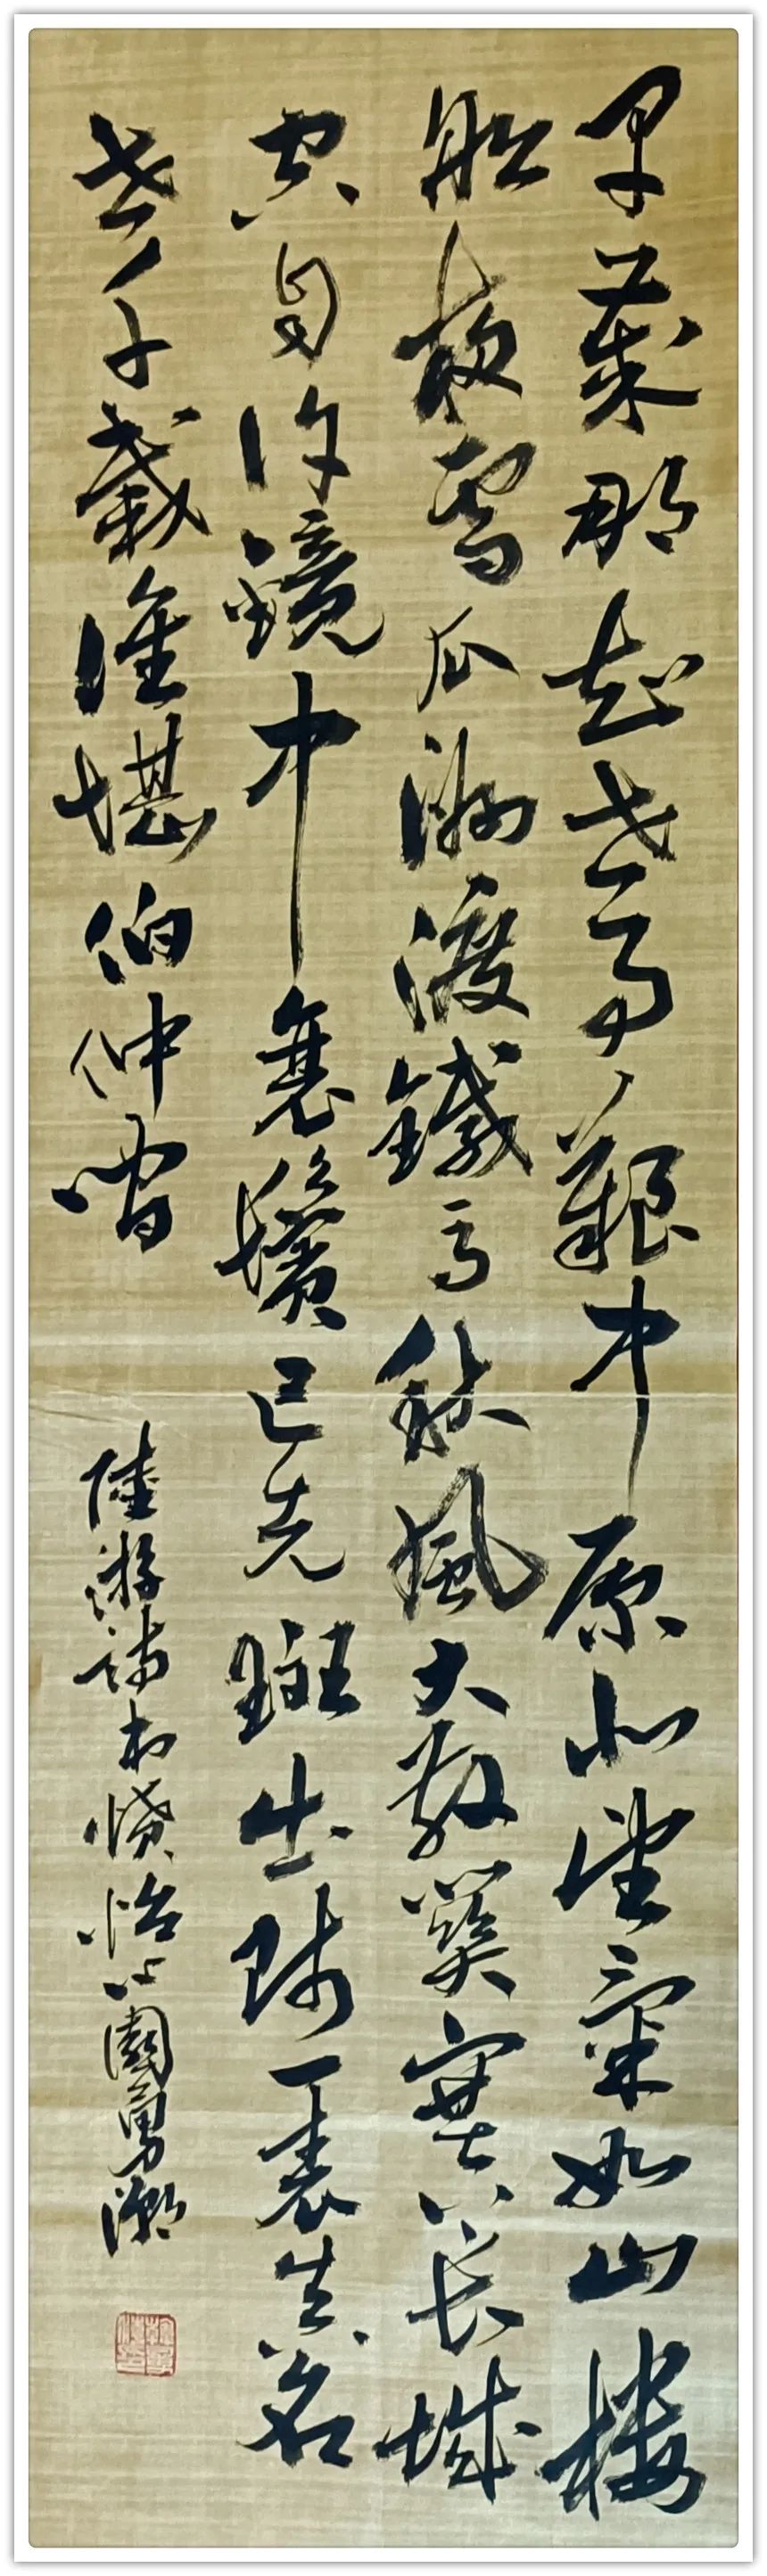 早歲那知世事艱中原北望氣如山樓
船夜雪瓜洲渡鐵馬秋風大散關塞上長城
空自許鏡中衰鬢已先斑出師一表真名
世千載誰堪伯仲間
陸游詩書憤怡心園勇潮